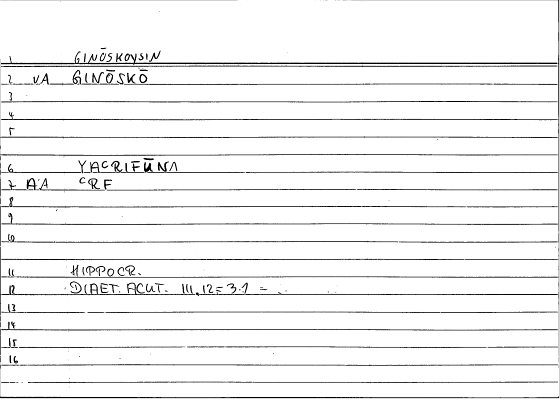 1 GINŌSKOYSIN
2 VA GINŌSKŌ
3
4
5
6 YAᶜRIFŪNA
7 AA ᶜRF
8
9
10
11 HIPPOCR.
12 DIAET. ACUT. III, 12 = 3.1 =
13
14
15
16